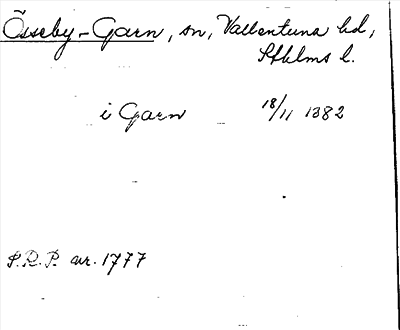 Össeby-Garn, sn, Vallentuna hd,
Sthlms l.
i Garn 18/11 1382
S.R.P. nr. 1777